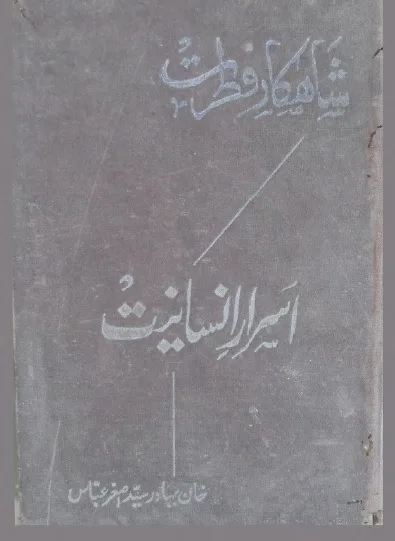 شاہکارِ فطرت
اسرارِ انسانیت
خان بہادر سیّد اصغر عبّاس